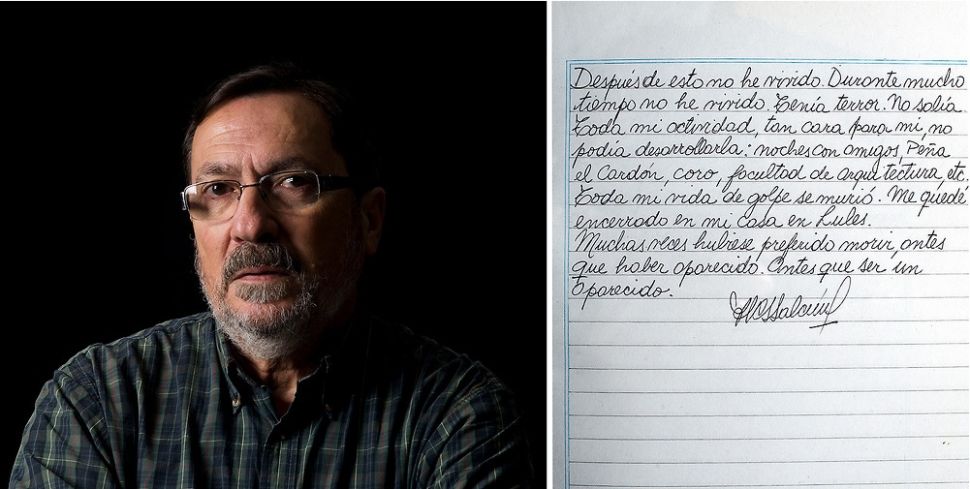 Después de esto no he vivido. Durante mucho
tiempo no he vivido. Tenía terror. No salía.
Toda mi actividad, tan cara para mí, no
podía desarrollarla: noches con amigos, Peña
el Cardón, coro, facultad de arquitectura, etc.
Toda mi vida de golpe se murió. Me quedé
encerrado en mi casa en Lules.
Muchas veces hubiese preferido morir, antes
que haber aparecido. Antes que ser un
aparecido.